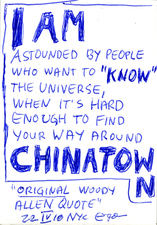 I AM
ASTOUNDED BY PEOPLE
WHO WANT TO "KNOW"
THE UNIVERSE,
WHEN IT'S HARD
ENOUGH TO FIND
YOUR WAY AROUND
CHINATOWN
"ORIGINAL WOODY
ALLEN QUOTE"
22 IV 10 NYC